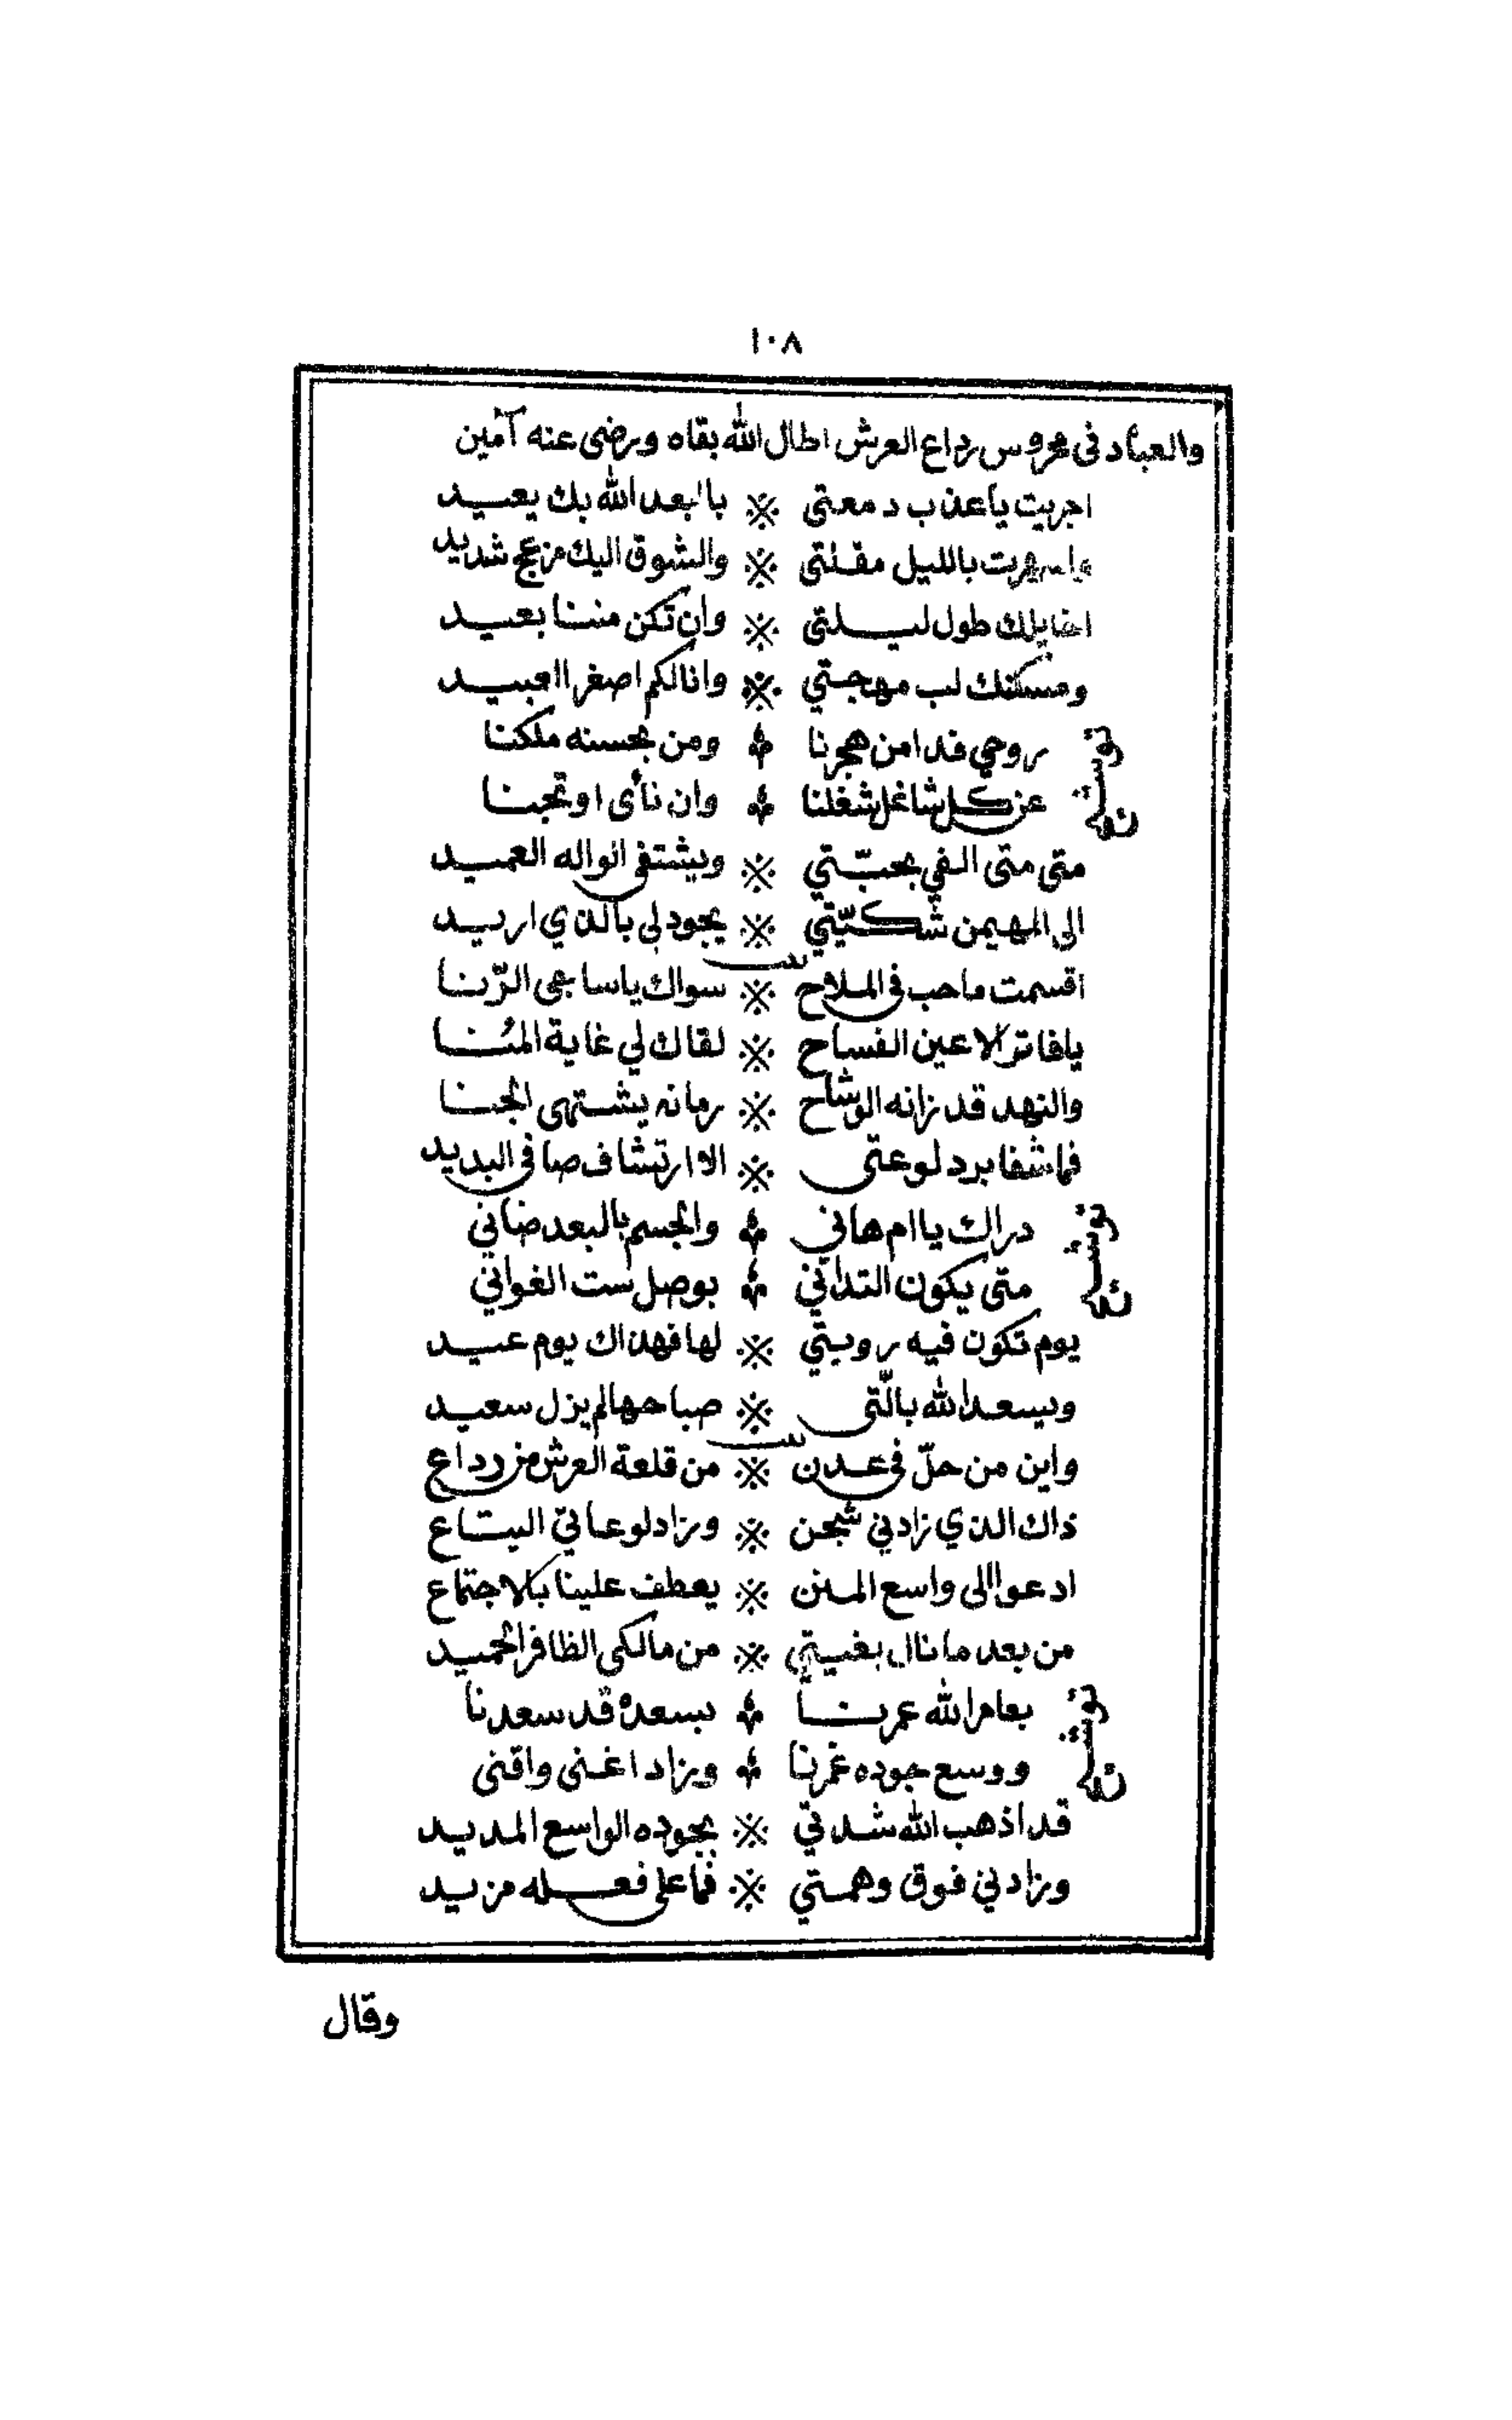 ١٠٨
والعباد فى محروس رداع العرش اطال الله بقاه ورضى عنه آمين
اجريت ياعذب دمعتى ※ بالبعد الله بك يعيد
واسهرت بالليل مقلتى ※ والشوق اليك مزعج شديد
اخايلك طول ليلتى ※ وان تكن مننا بعيد
ومسكنك لب مهجتي ※ وانالكم اصغر العبيد
توشيح
روحي فدا من هجرنا ※ ومن بحسنه ملكنا
عن كل شاغل شغلنا ※ وان نأى اوتجبنا
تقفيله
متى متى الفي بحبّتي ※ ويشتفى الواله العميد
الى المهيمن شكيّتي ※ يجود لى بالذي اريد
بيت
اقسمت ماحب فى الملاح ※ سواك ياساجى الرّنا
يافاتر الاعين الفساح ※ لقاك لي غاية المُنا
والنهد قد زانه الوشاح ※ رمانه يشتهى الجنا
فماشفا برد لوعتى ※ الا ارتشاف صافى البديد
توشيح
دراك ياام هاني ※ والجسم بالبعد ضاني
متى يكون التداني ※ بوصل ست الغواني
تقفيله
يوم تكون فيه رويتي ※ لها فهذاك يوم عيد
ويسعد الله بالّتى ※ صباحها لم يزل سعيد
بيت
واين من حلّ فى عدن ※ من قلعة العرش من رداع
ذاك الذي زادني شجن ※ وزاد لوعاتي التياع
ادعوا الى واسع المنن ※ يعطف علينا بالاجتماع
من بعد ما نال بغيتي ※ من مالكى الظافر الحميد
توشيح
بعامر الله عمرنا ※ بسعده قد سعدنا
ووسع جوده غمرنا ※ وزاد اغنى واقنى
تقفيله
قد اذهب الله شدتي ※ بجوده الواسع المديد
وزادني فوق وهمتي ※ فما على فعله مزيد
وقال